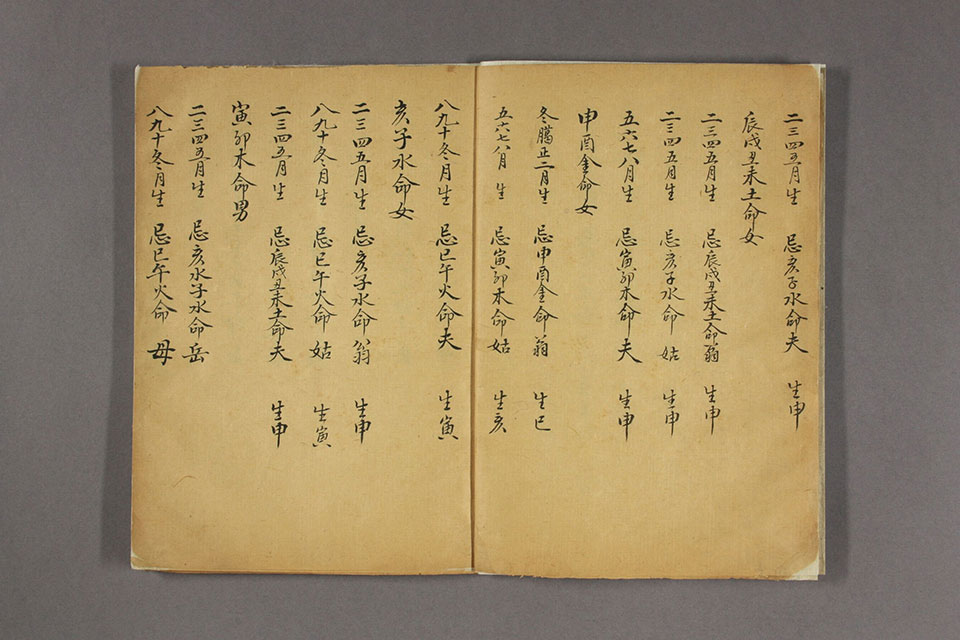 二三四五月生 忌亥子水命夫 生申
辰戌丑未土命女
二三四五月生 忌辰戌丑未土命翁 生申
二三四五月生 忌亥子水命姑 生申
五六七八月生 忌寅卯木命夫 生申
申酉金命女
冬臈正二月生 忌申酉金命翁 生巳
五六七八月生 忌寅卯木命姑 生亥
八九十冬月生 忌巳午火命夫 生寅
亥子水命女
二三四五月生 忌亥子水命翁 生申
八九十冬月生 忌巳午火命姑 生寅
二三四五月生 忌辰戌丑未土命夫 生申
寅卯木命男
二三四五月生 忌亥水子水命岳
八九十冬月生 忌巳午火命母